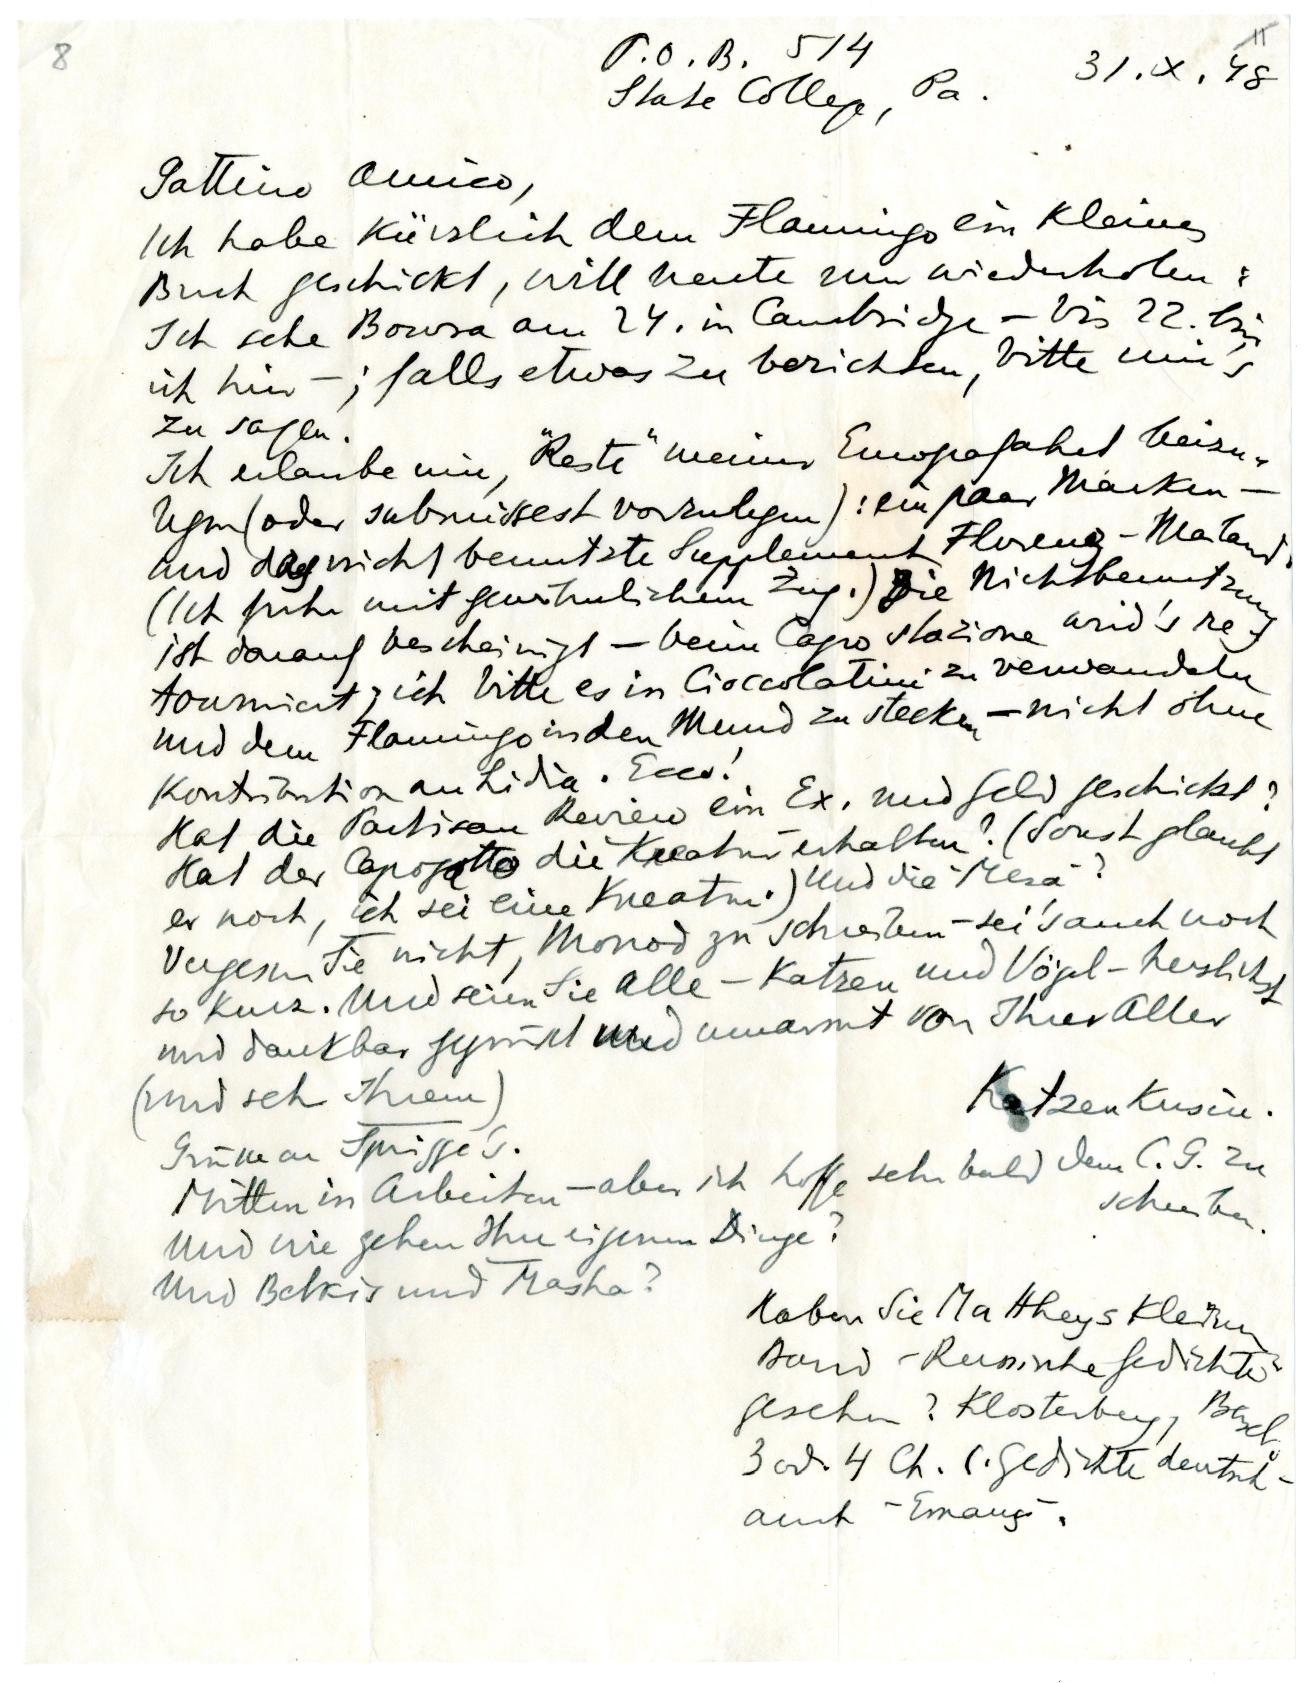 8
11
P.O.B. 514
State College, Pa.
31.IX.48
Gattino Amico,
Ich habe kürzlich dem Flamingo ein kleines
Buch geschickt, will heute nur wiederholen:
Ich sehe Bowra am 24. in Cambridge – bis 22. bin
ich hier –; falls etwas zu berichten, bitte mir's
zu sagen.
Ich erlaube mir, "Reste" meiner Europafahrt beizu-
legen (oder submissest vorzulegen): ein paar Marken –
und das nicht benutzte Supplement Florenz-Mailand.
(Ich fuhr mit gewöhnlichem Zug.) Die Nichtbenutzung
ist darauf bescheinigt – beim Capo stazione wird's re-
tourniert; ich bitte es in Cioccolatini zu verwandeln
und dem Flamingo in den Mund zu stecken – nicht ohne
Kontribution an Lidia. Ecco!
Hat die Partisan Review ein Ex. und Geld geschickt?
Hat der Capogatto die Kreatur erhalten? (Sonst glaubt
er noch, ich sei eine Kreatur.) Und die "Mesa"?
Vergessen Sie nicht, Monod zu schreiben – sei's auch noch
so kurz. Und seien Sie Alle – Katzen und Vögel – herzlichst
und dankbar gegrüsst und umarmt von Ihrer Aller
(und sehr Ihrem)
Katzenkusin.
Grüsse an Sprigge's.
Mitten in Arbeiten – aber ich hoffe sehr bald dem C.G. zu
schreiben.
Und wie gehen Ihre eigenen Dinge?
Und Belkis und Masha?
Haben Sie Mattheys kleinen
Band "Russische Gedichte"
gesehen? Klosterberg, Basel.
3 od. 4 Ch. s. Gedichte deutsch –
auch "Emaus".